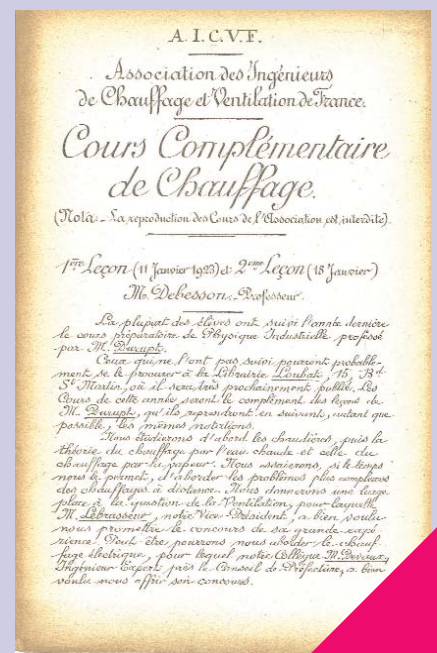 A.I.C.V.F.
Association des Ingénieurs
de Chauffage et Ventilation de France.
Cours Complémentaire
de Chauffage.
(Nota:- La reproduction des Cours de l'Association est interdite)
1ère Leçon (11 Janvier 1923) et 2ème Leçon (18 Janvier)
M. Debesson - Professeur.
La plupart des élèves ont suivi l'année dernière
le cours préparatoire de Physique Industrielle professé
par M. Durupt.
Ceux qui ne l'ont pas suivi pourront probable-
ment se le procurer à la Librairie Loubat, 15, Bd
St Martin, où il sera très prochainement publié. Les
Cours de cette année seront le complément des leçons de
M. Durupt, qu'ils reprendront en suivant, autant que
possible, les mêmes notations.
Nous étudierons d'abord les chaudières, puis la
théorie du chauffage par l'eau chaude et celle du
chauffage par la vapeur. Nous essaierons, si le temps
nous le permet, d'aborder les problèmes plus complexes
des chauffages à distance. Nous donnerons une large
place à la question de la Ventilation, pour laquelle
M. Lebrasseur, notre Vice-Président, a bien voulu
nous promettre le concours de sa grande expé
rience. Peut être pourrons nous aborder le chauf-
fage électrique, pour lequel notre Collègue M.
Ingénieur Expert près le Conseil de Préfecture, a bien
voulu nous offrir son concours.